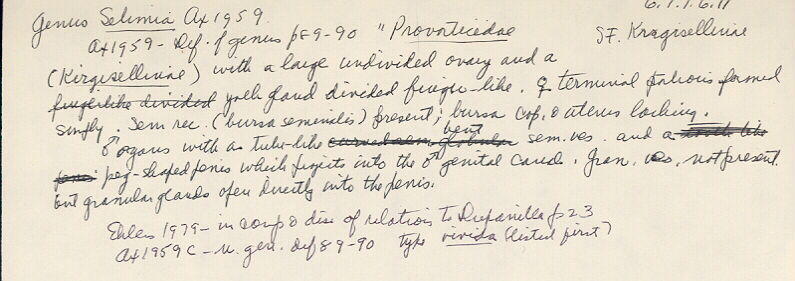 Genus Selimia Ax 1959.
Ax 1959 - Def. of genus p 89-90 "Provorticidae SF. Kirgisellinae
(Kirgisellinae) with a large undivided ovary and a
fingerlike divided yolk gland divided finger-like. ♀ terminal formed
simply. Sem rec. (bursa seminalis) present; bursa cop. & uterus lacking.
♂ organs with a tube-like bent globular sem. ves. and a tooth like
penis peg-shaped penis which projects into the ♂ genital canal. Gran. ves. not present
but granular glands open directly into the penis.
Ehlers 1979 - in comp & disc of relation to Drepanilla p 23
Ax 1959 C - n. gen. def 89-90 type vivida (listed first)